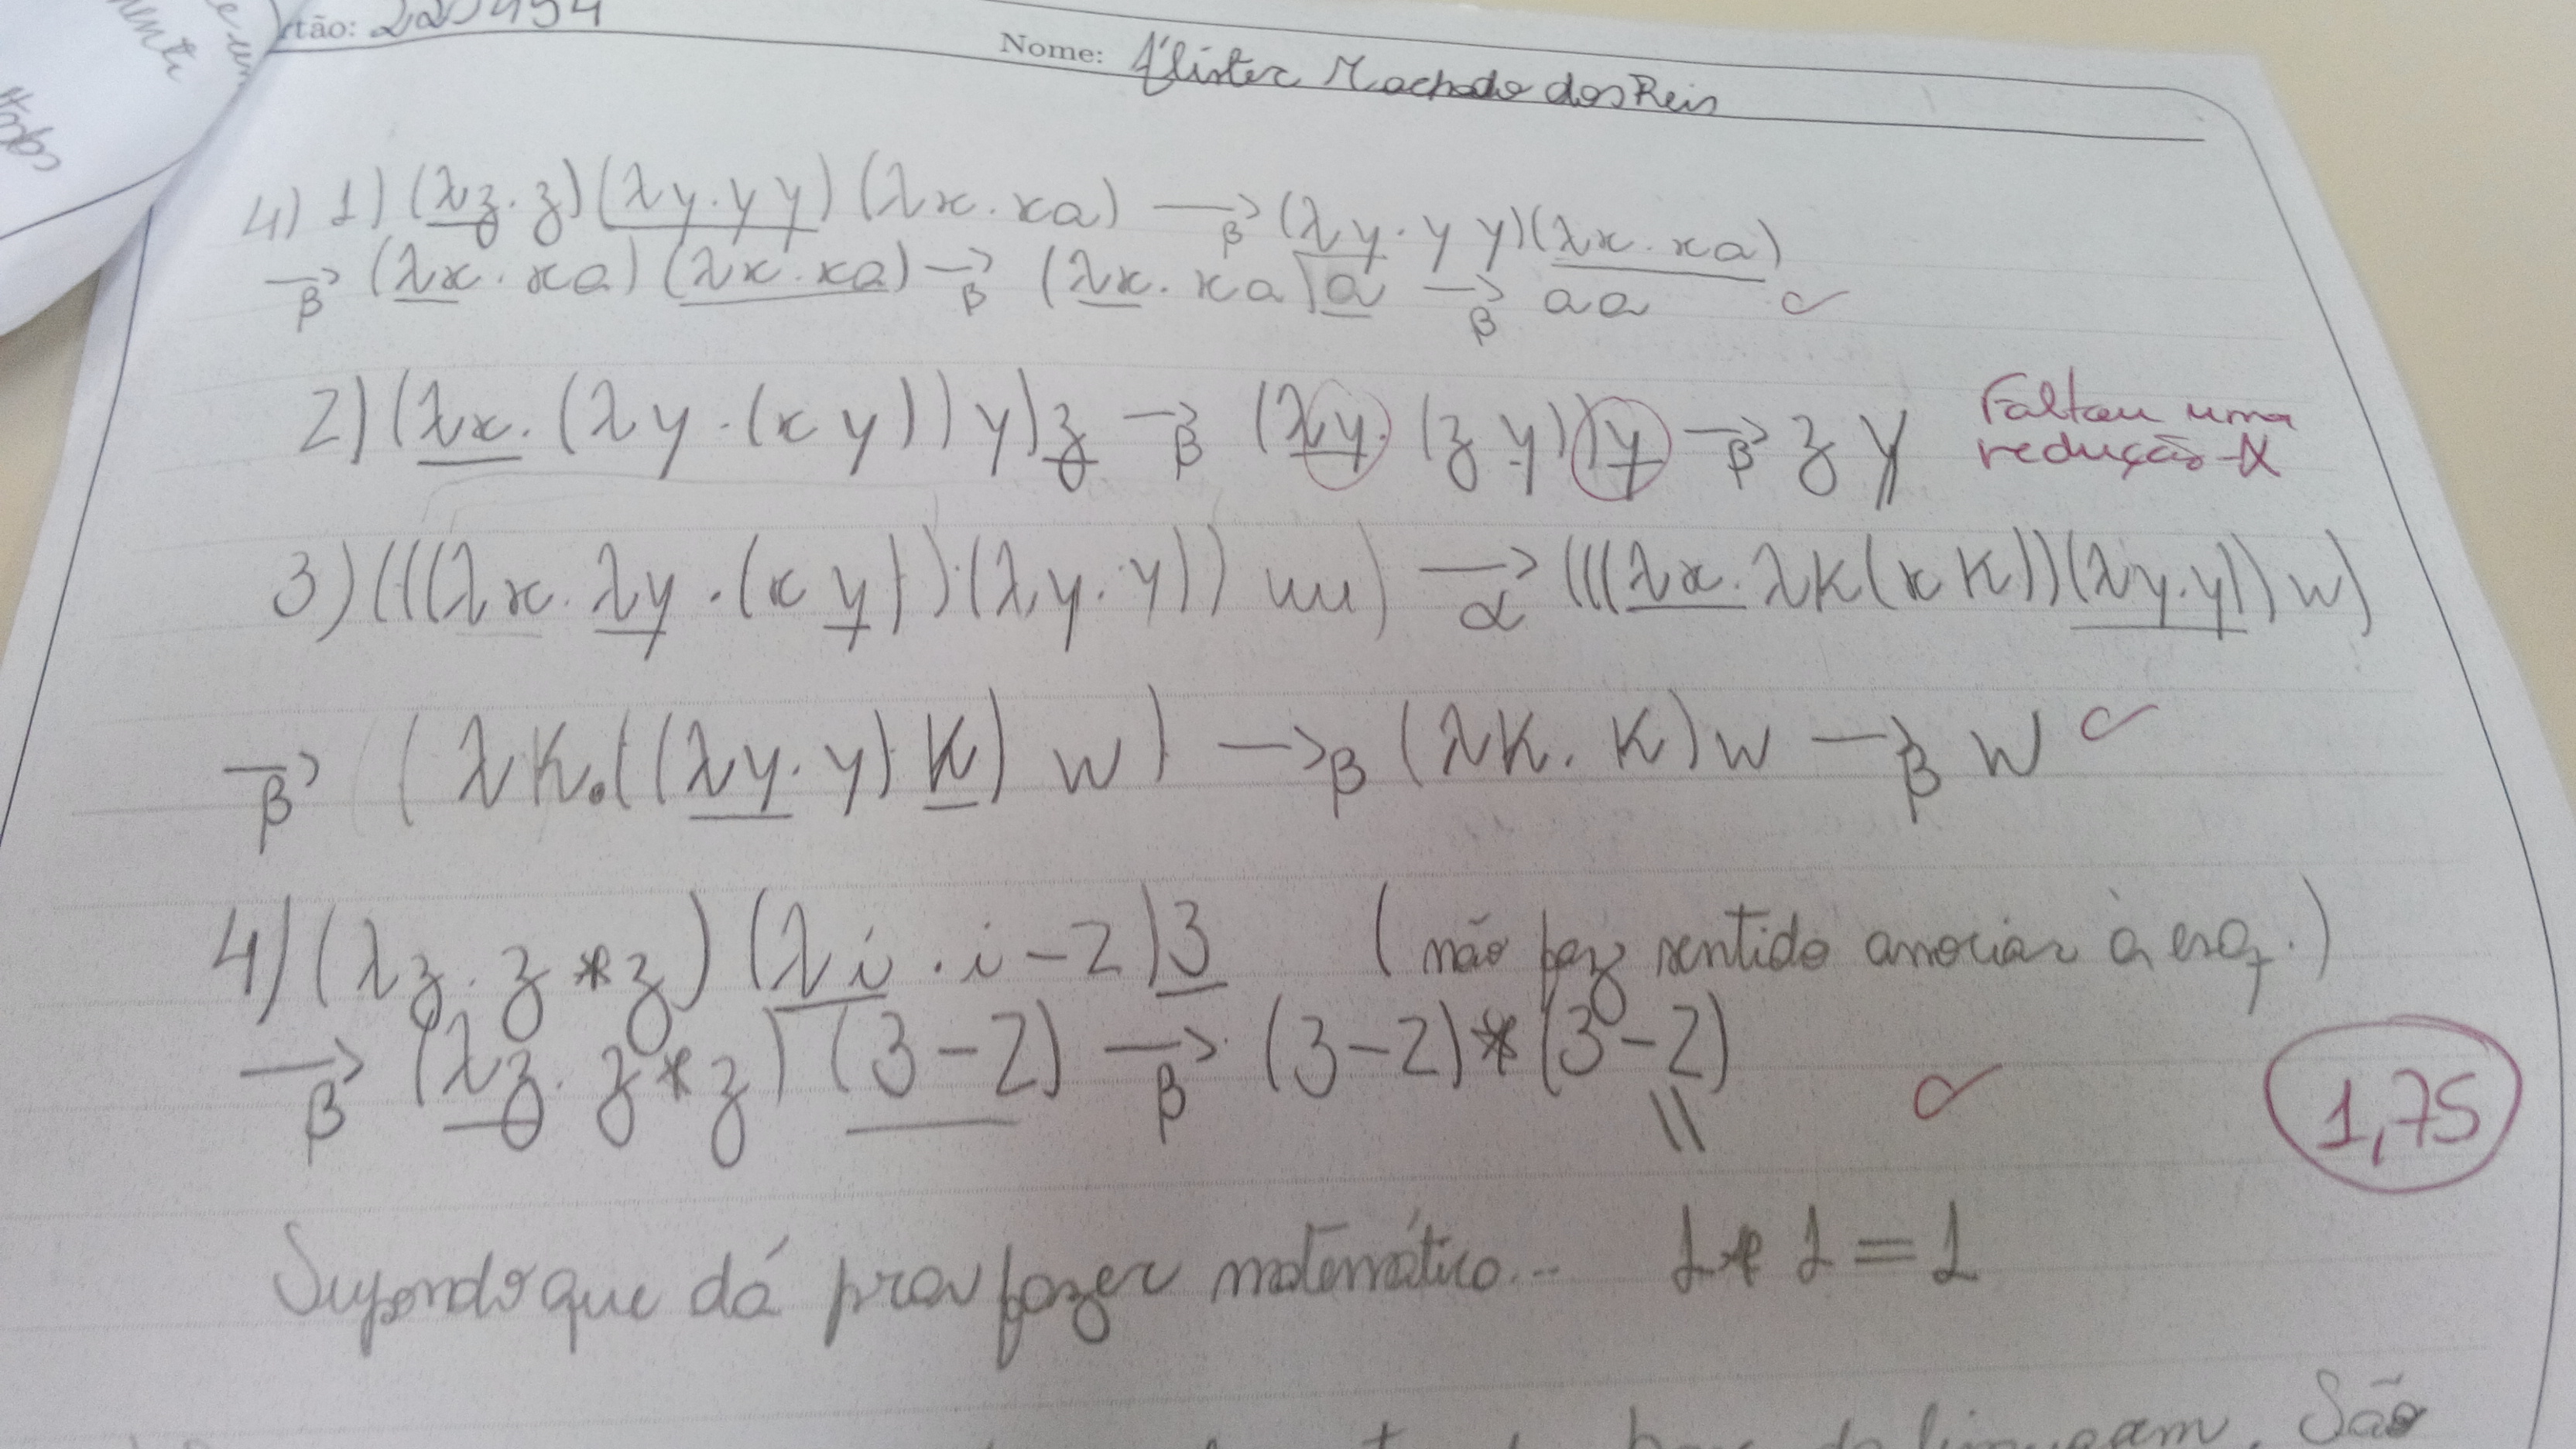 tão: 
Nome: Álister Machado dos Reis
4) 1) (λz.z)(λy.yy)(λx.xa) →β (λy.yy)(λx.xa)
→β (λx.xa)(λx.xa) →β (λx.xa)a →β aa
2) (λx.(λy.(xy))y)z →β (λy.(zy))y →β zy
Faltou uma
redução-α
3) (((λx.λy.(xy))(λy.y))w) →α (((λx.λk(xk))(λy.y))w)
→β (λk.((λy.y)k)w) →β (λk.k)w →β w
4) (λz.z*z)(λi.i-2)3 (não faz sentido associar à esq.)
→β (λz.z*z)(3-2) →β (3-2)*(3-2)
1,75
Supondo que dá pra fazer matemática... 1*1=1
São